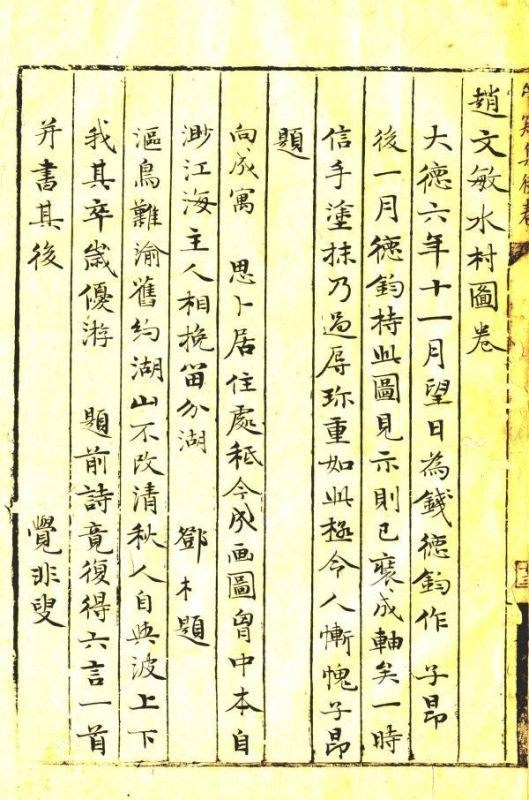 趙文敏水村圖卷
大德六年十一月望日為錢德鈞作 子昂
後一月德鈞持此圖見示則已裝成軸矣一時
信手塗抹乃過辱珍重如此極令人慚愧子昂
題
向成寓 思卜居住處秪今成画圖胷中本自
渺江海主人相挽留分湖 鄧木題
漚鳥難渝舊約湖山不改清秋人自與波上下
我其卒嵗優游 題前詩竟復得六言一首
并書其後 覺非叟